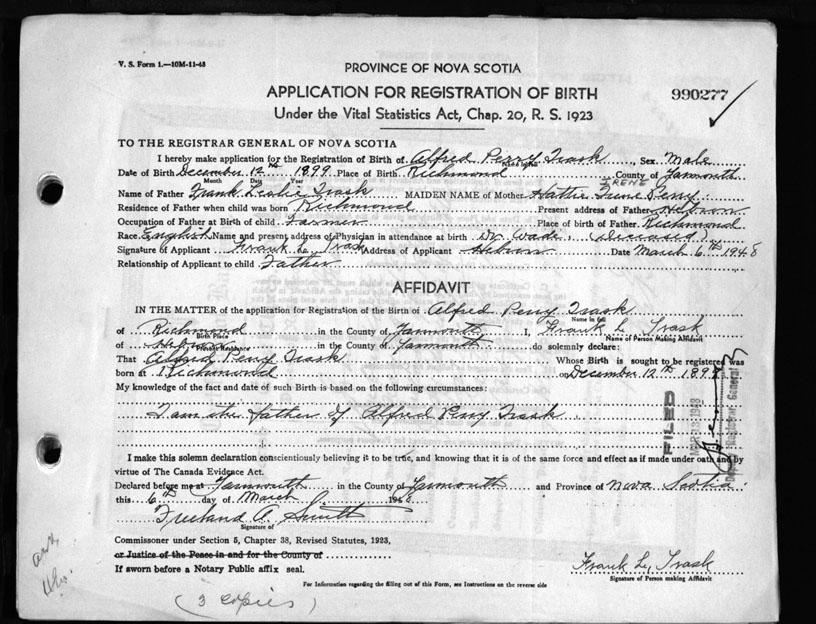 V. S. Form 1.—10M-11-48
PROVINCE OF NOVA SCOTIA
APPLICATION FOR REGISTRATION OF BIRTH
990277
Under the Vital Statistics Act, Chap. 20, R. S. 1923
TO THE REGISTRAR GENERAL OF NOVA SCOTIA
I hereby make application for the Registration of Birth of Alfred Perry Trask, Sex Male
Name in full
Date of Birth December 12th 1899 Place of Birth Richmond County of Yarmouth
Month Day Year
IRENE
Name of Father Frank Leslie Trask MAIDEN NAME of Mother Hattie Irene Perry
Residence of Father when child was born Richmond Present address of Father Hebron
Occupation of Father at Birth of child Farmer Place of birth of Father Richmond
Race English Name and present address of Physician in attendance at birth Dr Wade, (deceased)
Signature of Applicant Frank L. Trask Address of Applicant Hebron Date March 6th 1948
Relationship of Applicant to child Father
AFFIDAVIT
IN THE MATTER of the application for Registration of the Birth of Alfred Perry Trask
Name in full
of Richmond in the County of Yarmouth I, Frank L Trask
Birth Place Name of Person Making Affidavit
of Hebron in the County of Yarmouth do solemnly declare:
Present Residence
That Alfred Perry Trask Whose Birth is sought to be registered was
born at Richmond on December 12th 1899
My knowledge of the fact and date of such Birth is based on the following circumstances:
I am the father of Alfred Perry Trask
FILED
MAR 13 1948
Deputy Registrar General
I make this solemn declaration conscientiously believing it to be true, and knowing that it is of the same force and effect as if made under oath and by
virtue of The Canada Evidence Act.
Declared before me at Yarmouth in the County of Yarmouth and Province of Nova Scotia
this 6th day of March 1948
Freeland A. Smith
Signature of
Commissioner under Section 5, Chapter 38, Revised Statutes, 1923,
or Justice of the Peace in and for the County of
If sworn before a Notary Public affix seal.
Frank L. Trask
Signature of Person making Affidavit
For Information regarding the filling out of this Form, see Instructions on the reverse side
(3 copies)